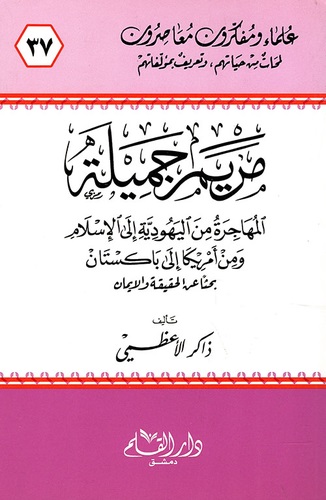 علماء ومفكرون معاصرون
لمحات من حياتهم، وتعريف بمؤلفاتهم
٣٧
مريم جميلة
المهاجرة من اليهودية إلى الإسلام
ومن أمريكا إلى باكستان
بحثا عن الحقيقة والإيمان
تأليف
ذاكر الأعظمي
دار القلم
دمشق